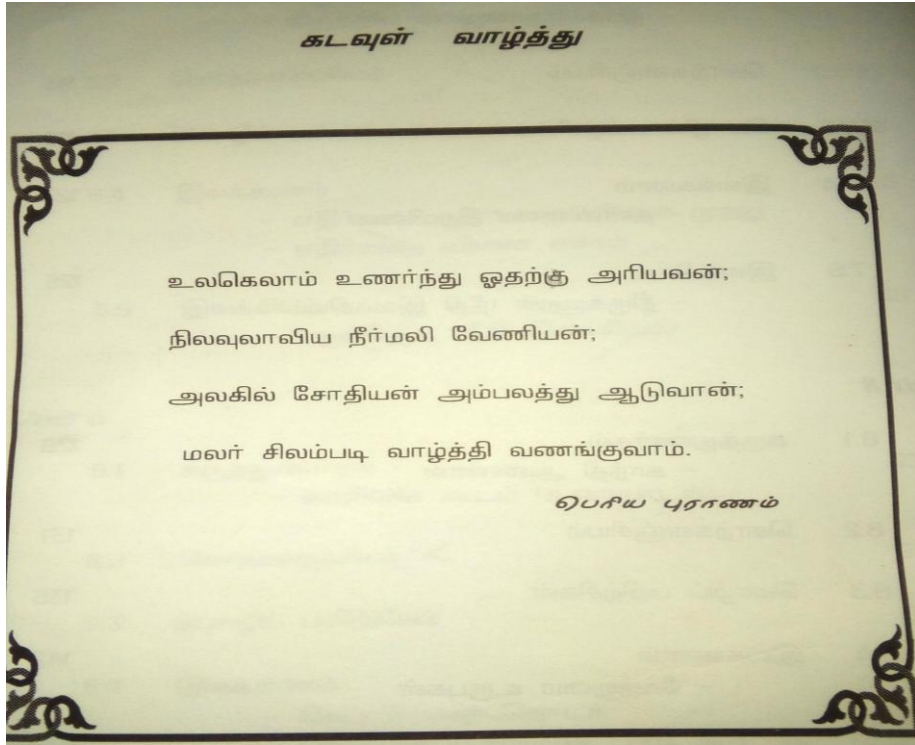 கடவுள் வாழ்த்து
உலகெலாம் உணர்ந்து ஓதற்கு அரியவன்;
நிலவுலாவிய நீர்மலி வேணியன்;
அலகில் சோதியன் அம்பலத்து ஆடுவான்;
மலர் சிலம்படி வாழ்த்தி வணங்குவாம்.
பெரிய புராணம்